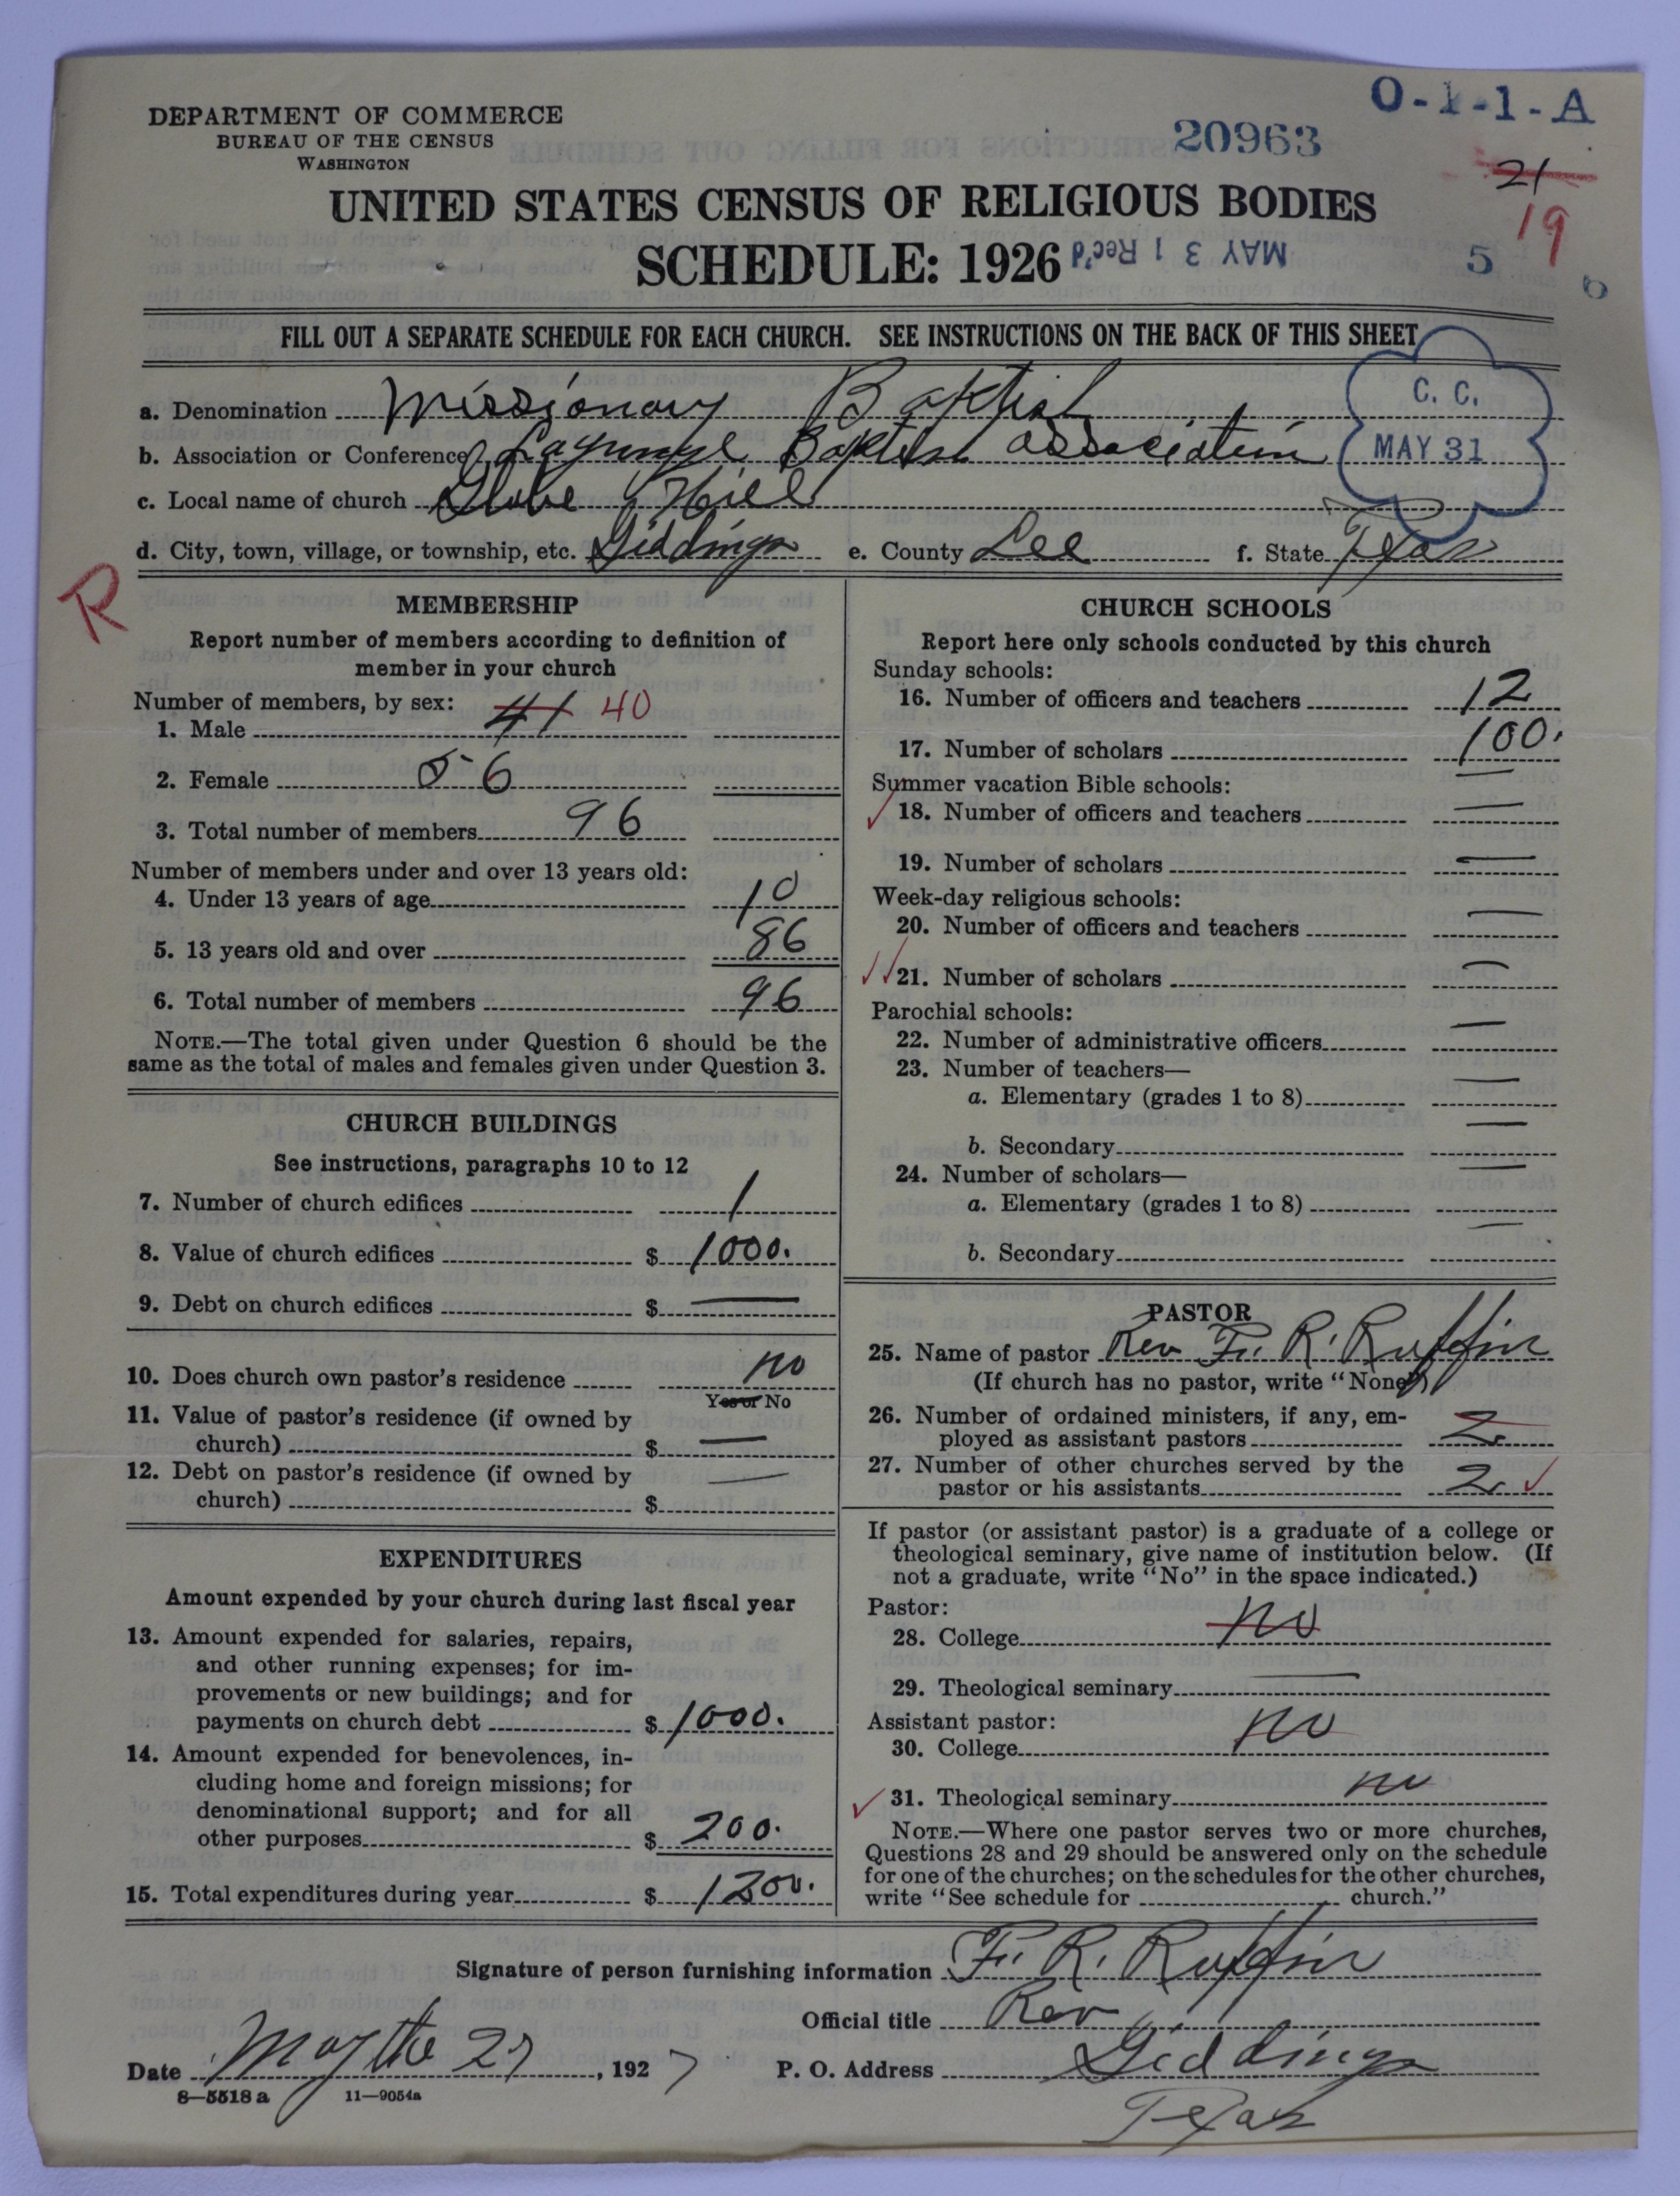 DEPARTMENT OF COMMERCE
BUREAU OF THE CENSUS
WASHINGTON
O-1-1-A
20963
21
19
UNITED STATES CENSUS OF RELIGIOUS BODIES
SCHEDULE: 1926
MAY 31 Rec'd
5
6
FILL OUT A SEPARATE SCHEDULE FOR EACH CHURCH. SEE INSTRUCTIONS ON THE BACK OF THIS SHEET
C. C.
MAY 31
a. Denomination Missionary Baptist
b. Association or Conference Lagrange Baptist Association
c. Local name of church Globe Hill
d. City, town, village, or township, etc. Giddings e. County Lee f. State Texas
R
MEMBERSHIP
Report number of members according to definition of
member in your church
Number of members, by sex:
1. Male 41 40
2. Female 56
3. Total number of members 96
Number of members under and over 13 years old:
4. Under 13 years of age 10
5. 13 years old and over 86
6. Total number of members 96
NOTE.—The total given under Question 6 should be the
same as the total of males and females given under Question 3.
CHURCH BUILDINGS
See instructions, paragraphs 10 to 12
7. Number of church edifices 1
8. Value of church edifices $ 1000.
9. Debt on church edifices $ —
10. Does church own pastor's residence no
Yes or No
11. Value of pastor's residence (if owned by
church) $ —
12. Debt on pastor's residence (if owned by
church) $ —
EXPENDITURES
Amount expended by your church during last fiscal year
13. Amount expended for salaries, repairs,
and other running expenses; for im-
provements or new buildings; and for
payments on church debt $ 1000.
14. Amount expended for benevolences, in-
cluding home and foreign missions; for
denominational support; and for all
other purposes $ 200.
15. Total expenditures during year $ 1200.
CHURCH SCHOOLS
Report here only schools conducted by this church
Sunday schools:
16. Number of officers and teachers 12
17. Number of scholars 100.
Summer vacation Bible schools: —
18. Number of officers and teachers —
19. Number of scholars —
Week-day religious schools:
20. Number of officers and teachers —
21. Number of scholars —
Parochial schools:
22. Number of administrative officers —
23. Number of teachers—
a. Elementary (grades 1 to 8) —
b. Secondary —
24. Number of scholars—
a. Elementary (grades 1 to 8) —
b. Secondary —
PASTOR
25. Name of pastor Rev F. R. Ruffin
(If church has no pastor, write "None")
26. Number of ordained ministers, if any, em-
ployed as assistant pastors 2
27. Number of other churches served by the
pastor or his assistants 2
If pastor (or assistant pastor) is a graduate of a college or
theological seminary, give name of institution below. (If
not a graduate, write "No" in the space indicated.)
Pastor:
28. College no
29. Theological seminary —
Assistant pastor:
30. College no
31. Theological seminary no
NOTE.—Where one pastor serves two or more churches,
Questions 28 and 29 should be answered only on the schedule
for one of the churches; on the schedules for the other churches,
write "See schedule for church."
Signature of person furnishing information F. R. Ruffin
Official title Rev
Date May the 27, 1927 P. O. Address Giddings
Texas
8—5518 a 11—9054a